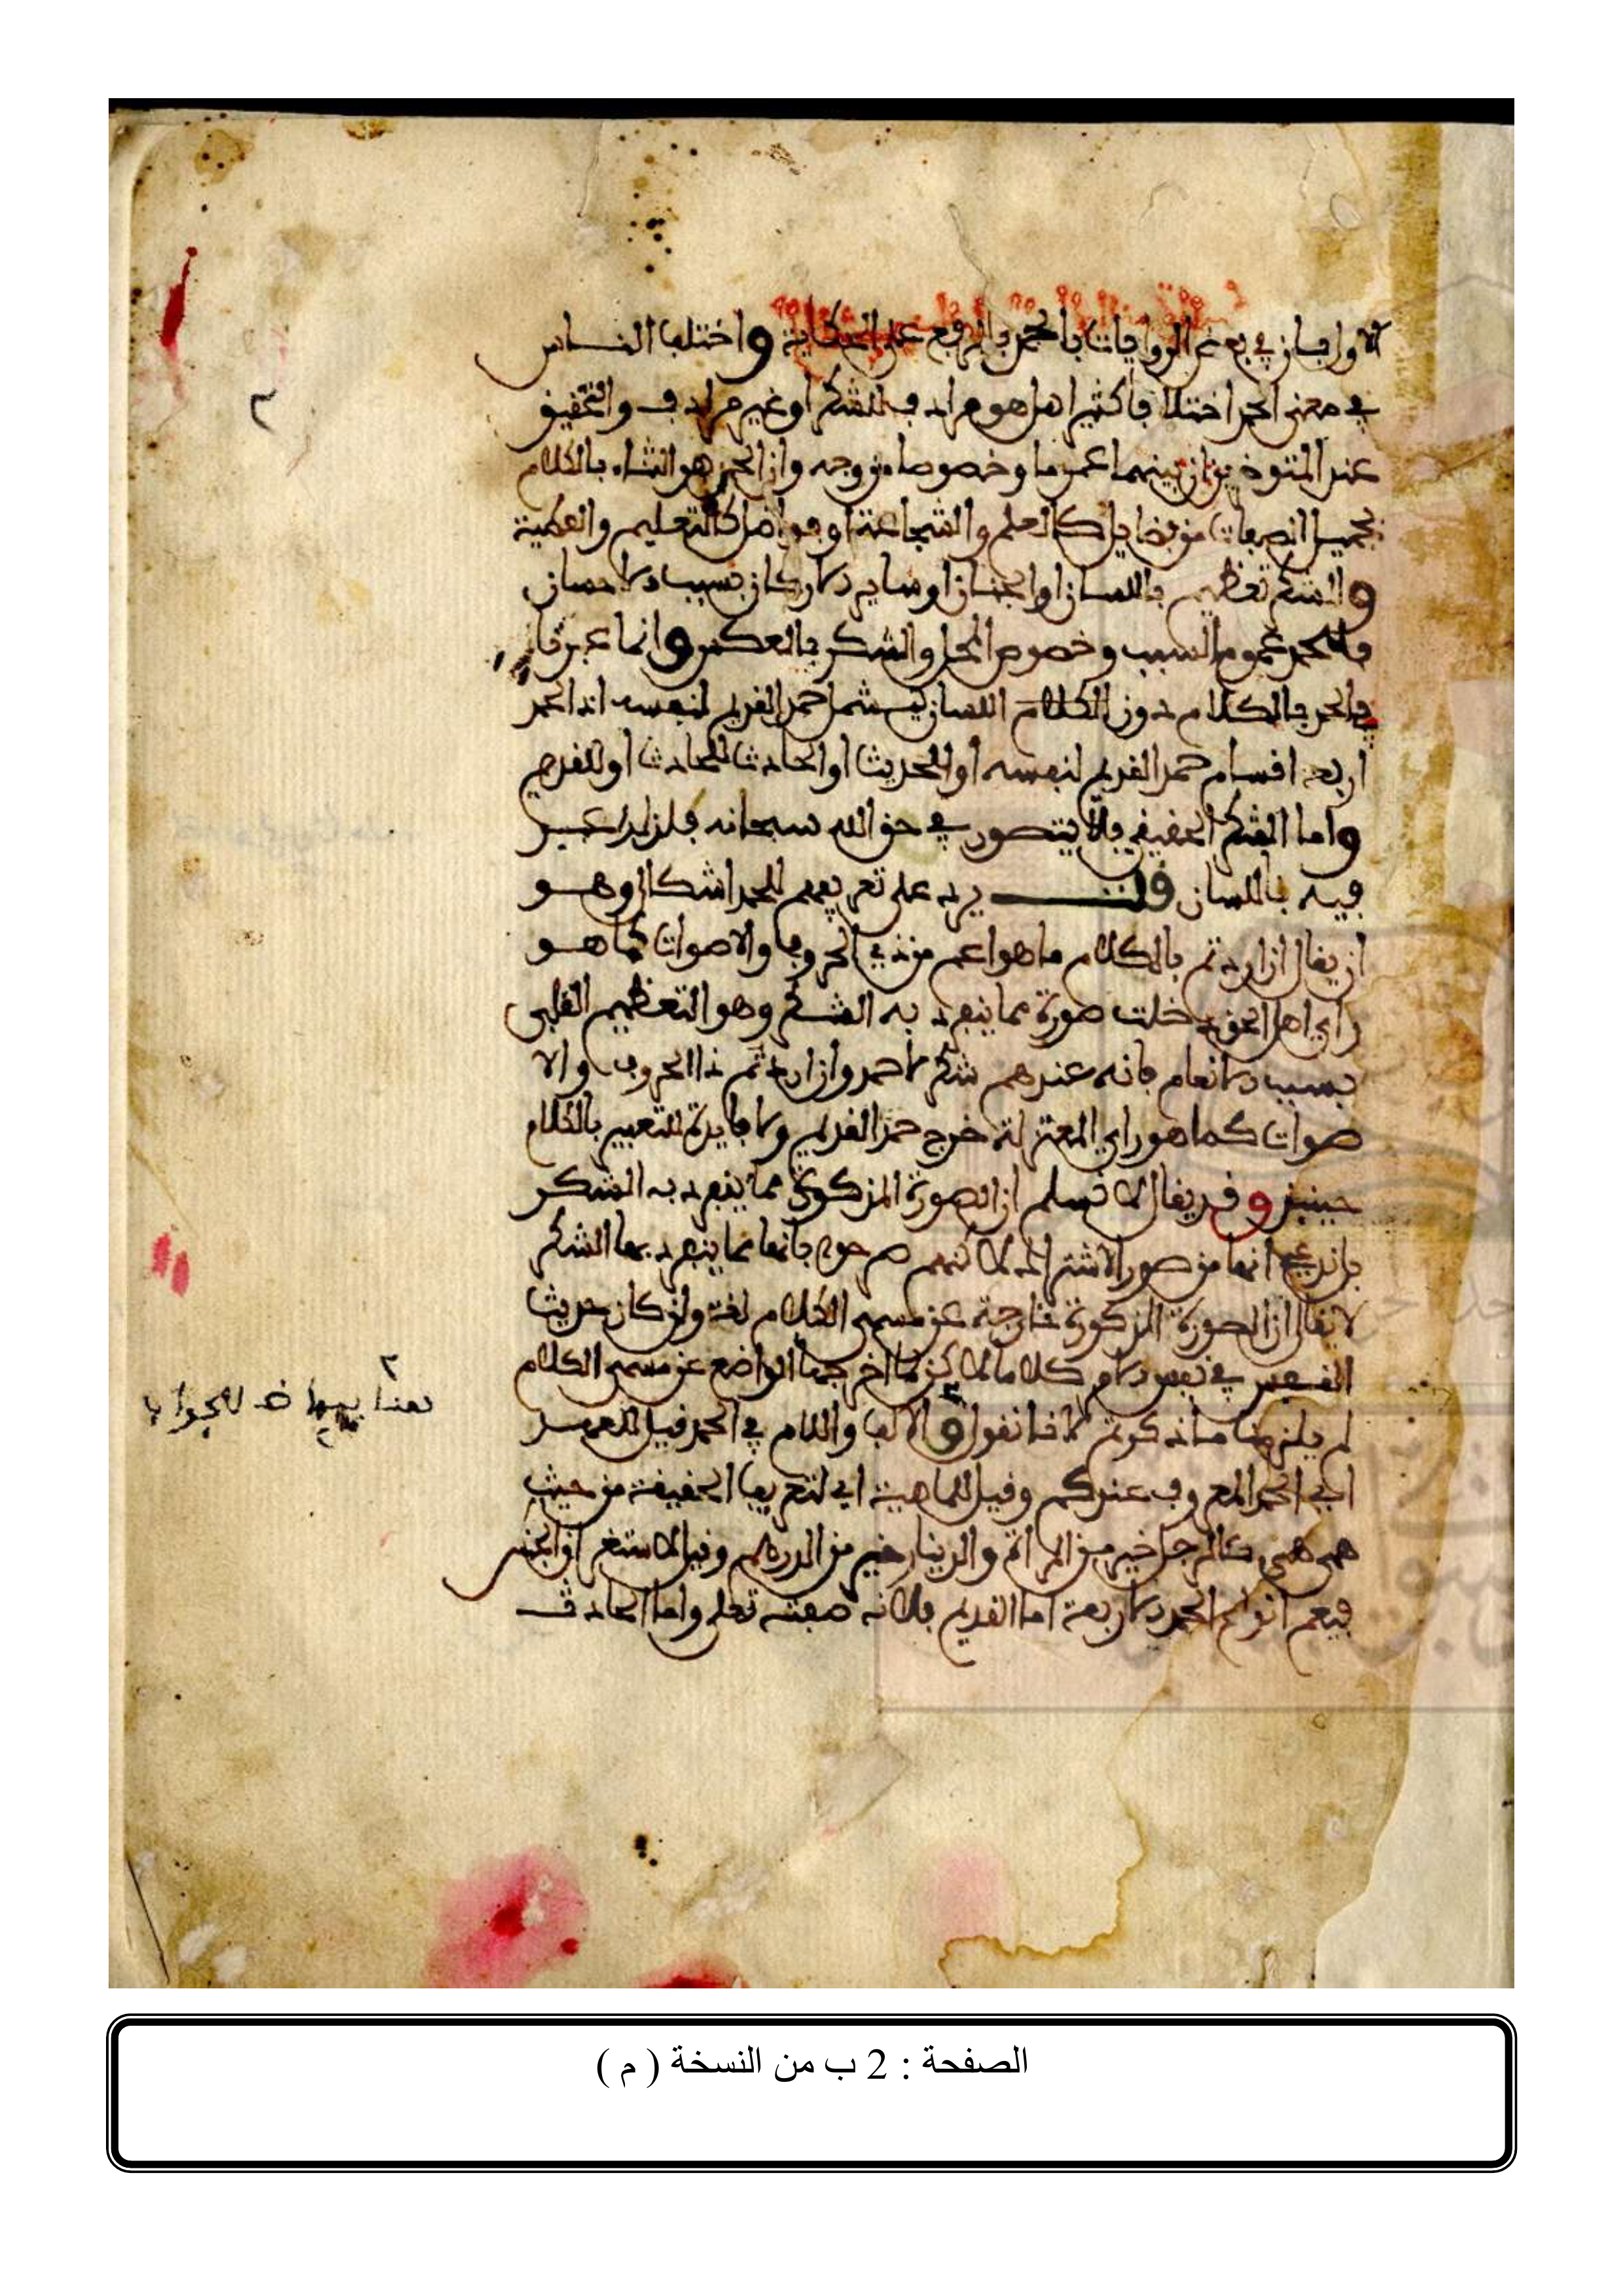 الاولفان في بعض الروايات بالحمد بالرفع على الحكاية واختلف الناس
في معنى الحمد اختلافا كثيرا هل هو مرادف للشكر او غير مرادف والتحقيق
عند المتوخين ان بينهما عموما وخصوصا من وجه وان الحمد هو الثناء بالكلام
بجميل الصفات من فضايل كالعلم والشجاعة او فواضل كالتعليم والعطية
والشكر تعظيم باللسان او الجنان او ساير الاركان بسبب الاحسان
فللحمد عموم السبب وخصوص المحل والشكر بالعكس وانما عبرنا
في الحد بالكلام دون اللسان ليشمل حمد القديم لنفسه اذ الحمد
اربعة اقسام حمد القديم لنفسه او للحديث او الحادث للحادث او للقديم
واما الشكر الحقيقي فلا يتصور في حق الله سبحانه فلذلك عبر
فيه باللسان قلت يرد على تعريفهم للحمد اشكال وهو
ان يقال ان اردتم بالكلام ما هو اعم من ذي الحروف والاصوات كما هو
راي اهل الحق دخلت صورة مما ينفرد به الشكر وهو التعظيم القلبي
بسبب الانعام فانه عندهم شكر لا حمد وان اردتم ذا الحروف والا
صوات كما هو راي المعتزلة خرج حمد القديم ولا فايدة للتعبير بالكلام
حينئذ وقد يقال لا نسلم ان الصورة المذكورة مما ينفرد به الشكر
فاندعي انها من صور الاشتراك لانهم صرحوا بانها مما ينفرد بها الشكر
لا يقال ان الصورة المذكورة خارجة عن مسمى الكلام لغة وان كان حديث
النفس في نفس الامر كلاما لاكن لما اخرجها الواضع عن مسمى الكلام
لم يلزمنا ما ذكرتم لانا نقول والالف واللام في الحمد قيل للعهد
اي الحمد المعروف عندكم وقيل للماهية اي لتعريف الحقيقة من حيث
هي هي كالرجل خير من المراة والدينار خير من الدرهم وقيل لاستغراق الجنس
فيعم انواع الحمد الاربعة اما القديم فلانه صفته تعلى واما الحادث
٢
هنا بياض للجواب
الصفحة : 2 ب من النسخة ( م )